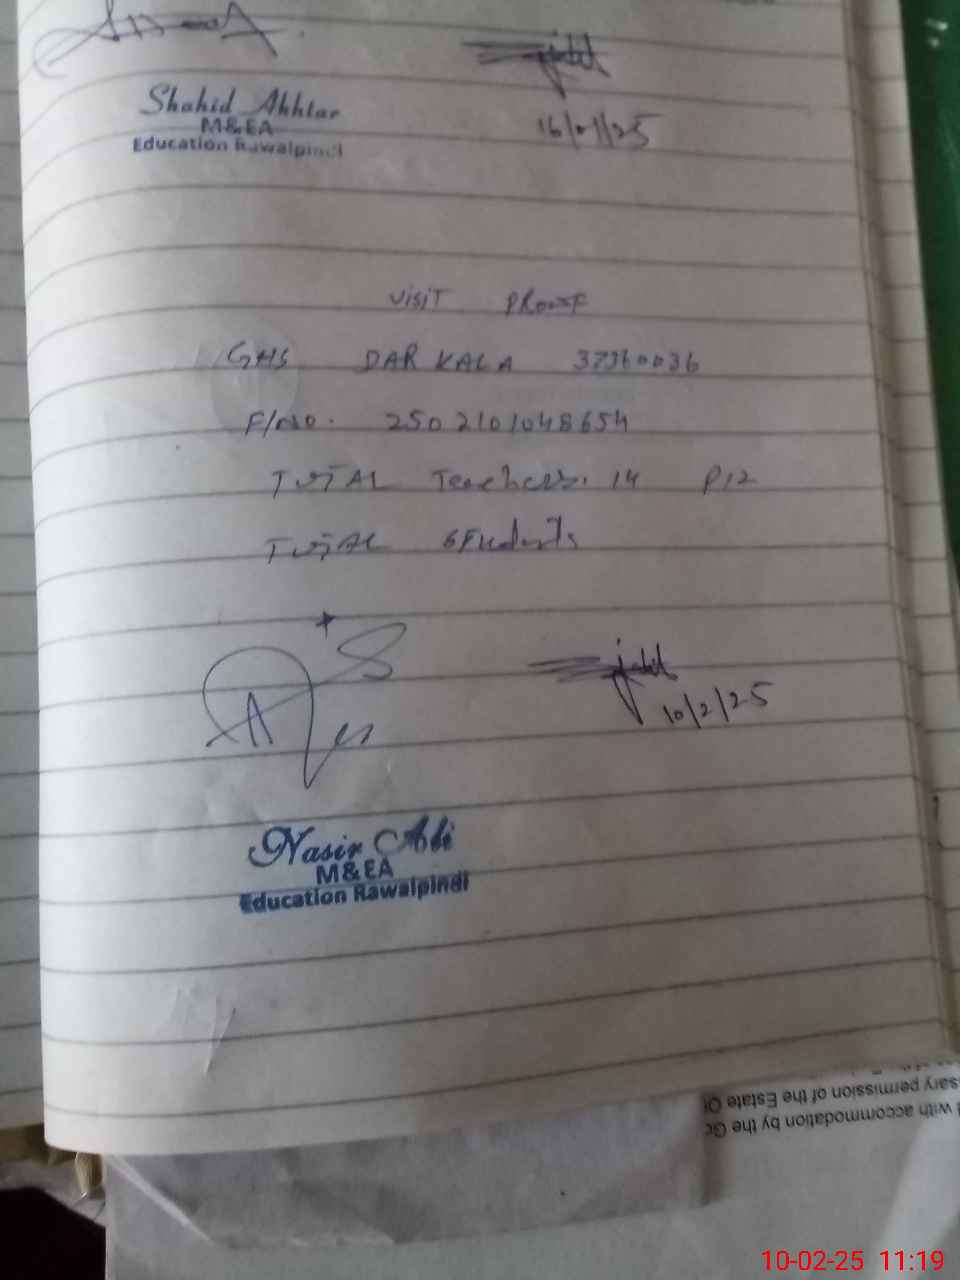 Shahid Akhtar
M&EA
Education Rawalpindi
16/01/25
VISIT PROOF
GHS DARKALA 37360036
F/No. 2502101048654
TOTAL Teachers. 14 P12
TOTAL Students
10/2/25
Nasir Ali
M&EA
Education Rawalpindi
sary permission of the Estate
with accommodation by the
10-02-25 11:19